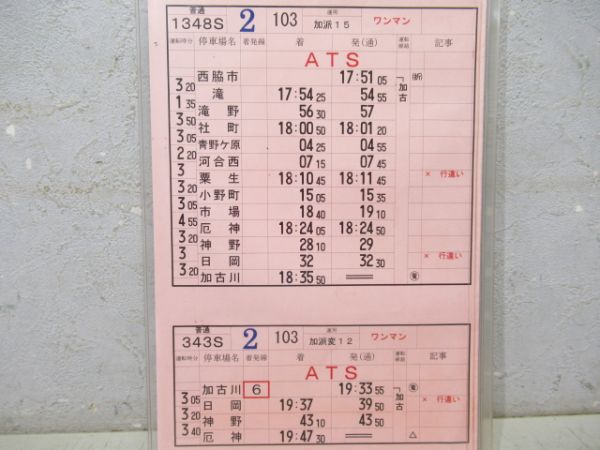 普通 運用
1348S 2 103 加派15 ワンマン
運転時分 停車場名 着発線 着 発(通) 運転線路 記事
ATS
西脇市 17:51 05 加古
3 20
滝 17:54 25 54 55
1 35
滝野 56 30 57
3 50
社町 18:00 50 18:01 20
3 05
青野ケ原 04 25 04 55
2 20
河合西 07 15 07 45
3
粟生 18:10 45 18:11 45 × 行違い
3 20
小野町 15 05 15 35
3 05
市場 18 40 19 10
4 55
厄神 18:24 05 18:24 50
3 20
神野 28 10 29
3
日岡 32 32 30 × 行違い
3 20
加古川 18:35 50
普通 運用
343S 2 103 加派変12 ワンマン
運転時分 停車場名 着発線 着 発(通) 運転線路 記事
ATS
加古川 6 19:33 55 加古
3 05
日岡 19:37 39 50 × 行違い
3 20
神野 43 10 43 50
3 40
厄神 19:47 30 △